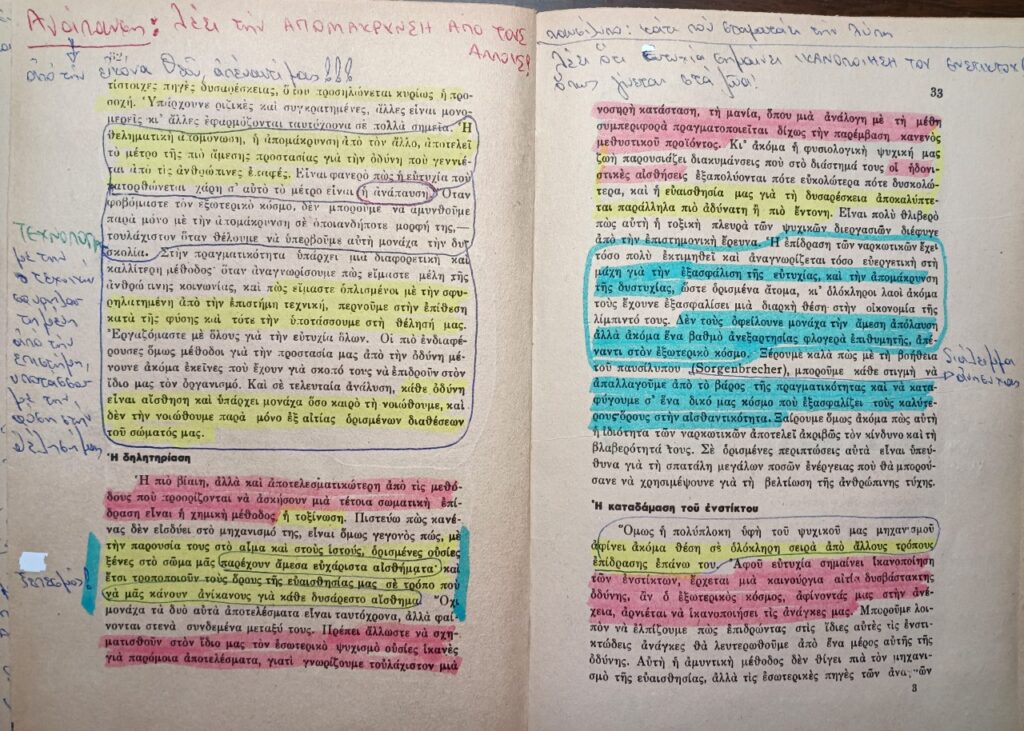 Ἀνάπαυση: λέει τὴν ΑΠΟΜΑΚΡΥΝΣΗ ΑΠΟ ΤΟΥΣ ΑΛΛΟΥΣ!
ἀπὸ τὴν εἰκόνα Θεοῦ, ἀπέναντί μας!!!
τίστοιχες πηγὲς δυσαρέσκειας, ὅταν προσηλώνεται κυρίως ἡ προ-
σοχή. Ὑπάρχουνε ριζικὲς καὶ συγκρατημένες, ἄλλες εἶναι μονο-
μερεῖς κι' ἄλλες ἐφαρμόζονται ταυτόχρονα σὲ πολλὰ σημεῖα. Ἡ
θεληματικὴ ἀπομόνωση, ἡ ἀπομάκρυνση ἀπὸ τὸν ἄλλο, ἀποτελεῖ
τὸ μέτρο τῆς πιὸ ἄμεσης προστασίας γιὰ τὴν ὀδύνη ποὺ γεννιέ-
ται ἀπὸ τὶς ἀνθρώπινες ἐπαφές. Εἶναι φανερὸ πὼς ἡ εὐτυχία ποὺ
κατορθώνεται χάρη σ' αὐτὸ τὸ μέτρο εἶναι ἡ ἀνάπαυση. Ὅταν
φοβώμαστε τὸν ἐξωτερικὸ κόσμο, δὲν μποροῦμε νὰ ἀμυνθοῦμε
παρὰ μόνο μὲ τὴν ἀπομάκρυνση σὲ ὁποιανδήποτε μορφή της,—
τουλάχιστον ὅταν θέλουμε νὰ ὑπερβοῦμε αὐτὴ μονάχα τὴν δυ-
σκολία. Στὴν πραγματικότητα ὑπάρχει μιὰ διαφορετικὴ καὶ
καλλίτερη μέθοδος· ὅταν ἀναγνωρίσουμε πὼς εἴμαστε μέλη τῆς
ἀνθρώπινης κοινωνίας, καὶ πὼς εἴμαστε ὁπλισμένοι μὲ τὴν σφυ-
ρηλατημένη ἀπὸ τὴν ἐπιστήμη τεχνική, περνοῦμε στὴν ἐπίθεση
κατὰ τῆς φύσης καὶ τότε τὴν ὑποτάσσουμε στὴ θέλησή μας.
Ἐργαζόμαστε μὲ ὅλους γιὰ τὴν εὐτυχία ὅλων. Οἱ πιὸ ἐνδιαφέ-
ρουσες ὅμως μέθοδοι γιὰ τὴν προστασία μας ἀπὸ τὴν ὀδύνη μέ-
νουνε ἀκόμα ἐκεῖνες ποὺ ἔχουν γιὰ σκοπό τους νὰ ἐπιδροῦν στὸν
ἴδιο μας τὸν ὀργανισμό. Καὶ σὲ τελευταία ἀνάλυση, κάθε ὀδύνη
εἶναι αἴσθηση καὶ ὑπάρχει μονάχα ὅσο καιρὸ τὴ νοιώθουμε, καὶ
δὲν τὴν νοιώθουμε παρὰ μόνο ἐξ αἰτίας ὁρισμένων διαθέσεων
τοῦ σώματός μας.
Ἡ δηλητηρίαση
Ἡ πιὸ βίαιη, ἀλλὰ καὶ ἀποτελεσματικώτερη ἀπὸ τὶς μεθό-
δους ποὺ προορίζονται νὰ ἀσκήσουν μιὰ τέτοια σωματικὴ ἐπί-
δραση εἶναι ἡ χημικὴ μέθοδος, ἡ τοξίνωση. Πιστεύω πὼς κανέ-
νας δὲν εἰσδύει στὸ μηχανισμό της, εἶναι ὅμως γεγονὸς πώς, μὲ
τὴν παρουσία τους στὸ αἷμα καὶ στοὺς ἱστούς, ὁρισμένες οὐσίες
ξένες στὸ σῶμα μᾶς παρέχουν ἄμεσα εὐχάριστα αἰσθήματα· καὶ
ἔτσι τροποποιοῦν τοὺς ὅρους τῆς εὐαισθησίας μας σὲ τρόπο ποὺ
νὰ μᾶς κάνουν ἀνίκανους γιὰ κάθε δυσάρεστο αἴσθημα. Ὄχι
μονάχα τὰ δυὸ αὐτὰ ἀποτελέσματα εἶναι ταυτόχρονα, ἀλλὰ φαί-
νονται στενὰ συνδεμένα μεταξύ τους. Πρέπει ἄλλωστε νὰ σχη-
ματισθοῦν στὸν ἴδιο μας τὸν ἐσωτερικὸ ψυχισμὸ οὐσίες ἱκανὲς
γιὰ παρόμοια ἀποτελέσματα, γιατὶ γνωρίζουμε τουλάχιστον μιὰ
ΤΕΧΝΟΛΟΓΙΑ
μὲ τὴν
τέχνικη
ἀπὸ τὴν
ἐπιστήμη,
ὑποτάσσου
με τὴν
φύση στὴν
θέλησή μας
παυσίλυπο: κάτι ποὺ σταματάει τὴν λύπη
λέει ὅτι εὐτυχία σημαίνει ΙΚΑΝΟΠΟΙΗΣΗ ΤΟΥ ΕΝΣΤΙΚΤΟΥ
ὅπως γίνεται στὰ ζῶα!
33
νοσηρὴ κατάσταση, τὴ μανία, ὅπου μιὰ ἀνάλογη μὲ τὴ μέθη
συμπεριφορὰ πραγματοποιεῖται δίχως τὴν παρέμβαση κανενὸς
μεθυστικοῦ προϊόντος. Κι' ἀκόμα ἡ φυσιολογικὴ ψυχική μας
ζωὴ παρουσιάζει διακυμάνσεις ποὺ στὸ διάστημά τους οἱ ἡδονι-
στικὲς αἰσθήσεις ἐξαπολύονται πότε εὐκολώτερα πότε δυσκολώ-
τερα, καὶ ἡ εὐαισθησία μας γιὰ τὴ δυσαρέσκεια ἀποκαλύπτε-
ται παράλληλα πιὸ ἀδύνατη ἢ πιὸ ἔντονη. Εἶναι πολὺ θλιβερὸ
πὼς αὐτὴ ἡ τοξικὴ πλευρὰ τῶν ψυχικῶν διεργασιῶν διέφυγε
ἀπὸ τὴν ἐπιστημονικὴ ἔρευνα. Ἡ ἐπίδραση τῶν ναρκωτικῶν ἔχει
τόσο πολὺ ἐκτιμηθεῖ καὶ ἀναγνωρίζεται τόσο εὐεργετικὴ στὴ
μάχη γιὰ τὴν ἐξασφάλιση τῆς εὐτυχίας, καὶ τὴν ἀπομάκρυνση
τῆς δυστυχίας, ὥστε ὁρισμένα ἄτομα, κι' ὁλόκληροι λαοὶ ἀκόμα
τοὺς ἔχουνε ἐξασφαλίσει μιὰ διαρκῆ θέση στὴν οἰκονομία τῆς
λίμπιντό τους. Δὲν τοὺς ὀφείλουνε μονάχα τὴν ἄμεση ἀπόλαυση
ἀλλὰ ἀκόμα ἕνα βαθμὸ ἀνεξαρτησίας φλογερὰ ἐπιθυμητῆς, ἀπέ-
ναντι στὸν ἐξωτερικὸ κόσμο. Ξέρουμε καλὰ πὼς μὲ τὴ βοήθεια
τοῦ παυσίλυπου (Sorgenbrecher), μποροῦμε κάθε στιγμὴ νὰ
ἀπαλλαγοῦμε ἀπὸ τὸ βάρος τῆς πραγματικότητας καὶ νὰ κατα-
φύγουμε σ' ἕνα δικό μας κόσμο ποὺ ἐξασφαλίζει τοὺς καλύτε-
ρους ὅρους στὴν αἰσθαντικότητα. Ξαίρουμε ὅμως ἀκόμα πὼς αὐτὴ
ἡ ἰδιότητα τῶν ναρκωτικῶν ἀποτελεῖ ἀκριβῶς τὸν κίνδυνο καὶ τὴ
βλαβερότητά τους. Σὲ ὁρισμένες περιπτώσεις αὐτὰ εἶναι ὑπεύ-
θυνα γιὰ τὴ σπατάλη μεγάλων ποσῶν ἐνέργειας ποὺ θὰ μπορού-
σανε νὰ χρησιμέψουνε γιὰ τὴ βελτίωση τῆς ἀνθρώπινης τύχης.
Ἡ καταδάμαση τοῦ ἐνστίκτου
Ὅμως ἡ πολύπλοκη ὑφὴ τοῦ ψυχικοῦ μας μηχανισμοῦ
ἀφίνει ἀκόμα θέση σὲ ὁλόκληρη σειρὰ ἀπὸ ἄλλους τρόπους
ἐπίδρασης ἐπάνω του. Ἀφοῦ εὐτυχία σημαίνει ἱκανοποίηση
τῶν ἐνστίκτων, ἔρχεται μιὰ καινούργια αἰτία δυσβάσταχτης
ὀδύνης, ἂν ὁ ἐξωτερικὸς κόσμος, ἀφίνοντάς μας στὴν ἀνέ-
χεια, ἀρνιέται νὰ ἱκανοποιήσει τὶς ἀνάγκες μας. Μποροῦμε λοι-
πὸν νὰ ἐλπίζουμε πὼς ἐπιδρώντας στὶς ἴδιες αὐτὲς τὶς ἐνστι-
κτώδεις ἀνάγκες θὰ λευτερωθοῦμε ἀπὸ ἕνα μέρος αὐτῆς τῆς
ὀδύνης. Αὐτὴ ἡ ἀμυντικὴ μέθοδος δὲν θίγει πιὰ τὸν μηχανι-
σμὸ τῆς εὐαισθησίας, ἀλλὰ τὶς ἐσωτερικὲς πηγὲς τῶν ἀναγκῶν
3